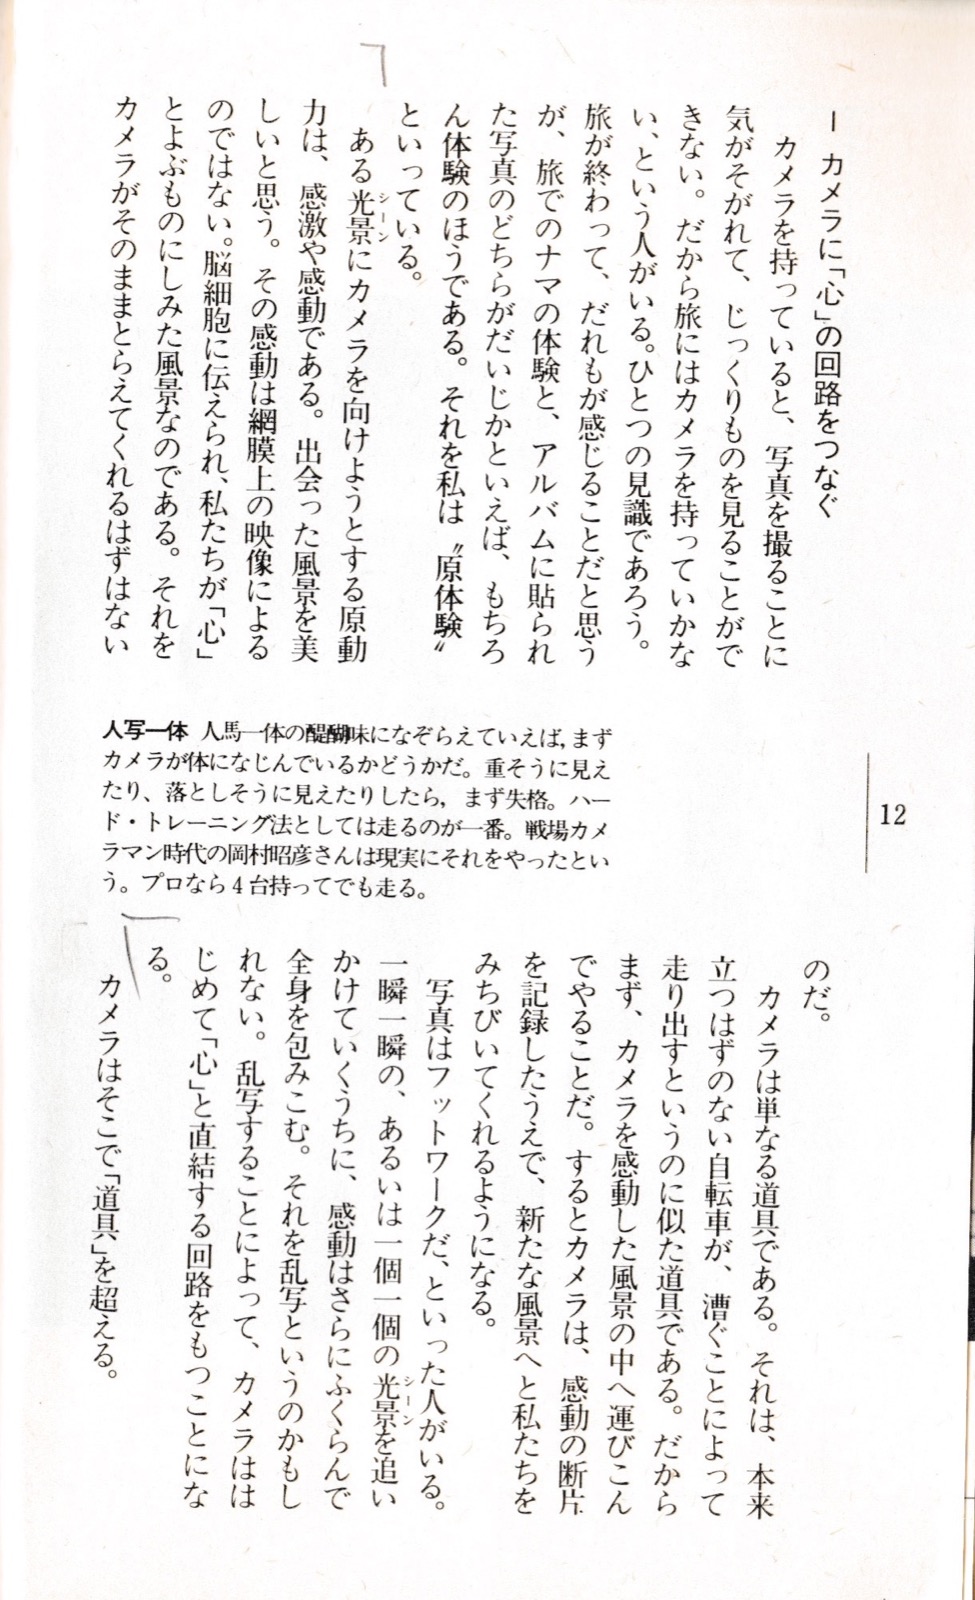 一 カメラに「心」の回路をつなぐ
カメラを持っていると、写真を撮ることに
気がそがれて、じっくりものを見ることがで
きない。だから旅にはカメラを持っていかな
い、という人がいる。ひとつの見識であろう。
旅が終わって、だれもが感じることだと思う
が、旅でのナマの体験と、アルバムに貼られ
た写真のどちらがだいじかといえば、もちろ
ん体験のほうである。それを私は〝原体験〟
といっている。
ある光景にカメラを向けようとする原動
シーン
力は、感激や感動である。出会った風景を美
しいと思う。その感動は網膜上の映像による
のではない。脳細胞に伝えられ、私たちが「心」
とよぶものにしみた風景なのである。それを
カメラがそのままとらえてくれるはずはない
のだ。
カメラは単なる道具である。それは、本来
立つはずのない自転車が、漕ぐことによって
走り出すというのに似た道具である。だから
まず、カメラを感動した風景の中へ運びこん
でやることだ。するとカメラは、感動の断片
を記録したうえで、新たな風景へと私たちを
みちびいてくれるようになる。
写真はフットワークだ、といった人がいる。
一瞬一瞬の、あるいは一個一個の光景を追い
シーン
かけていくうちに、感動はさらにふくらんで
全身を包みこむ。それを乱写というのかもし
れない。乱写することによって、カメラはは
じめて「心」と直結する回路をもつことにな
る。
カメラはそこで「道具」を超える。
人写一体 人馬一体の醍醐味になぞらえていえば,まず
カメラが体になじんでいるかどうかだ。重そうに見え
たり、落としそうに見えたりしたら,まず失格。ハー
ド・トレーニング法としては走るのが一番。戦場カメ
ラマン時代の岡村昭彦さんは現実にそれをやったとい
う。プロなら4台持ってでも走る。
12